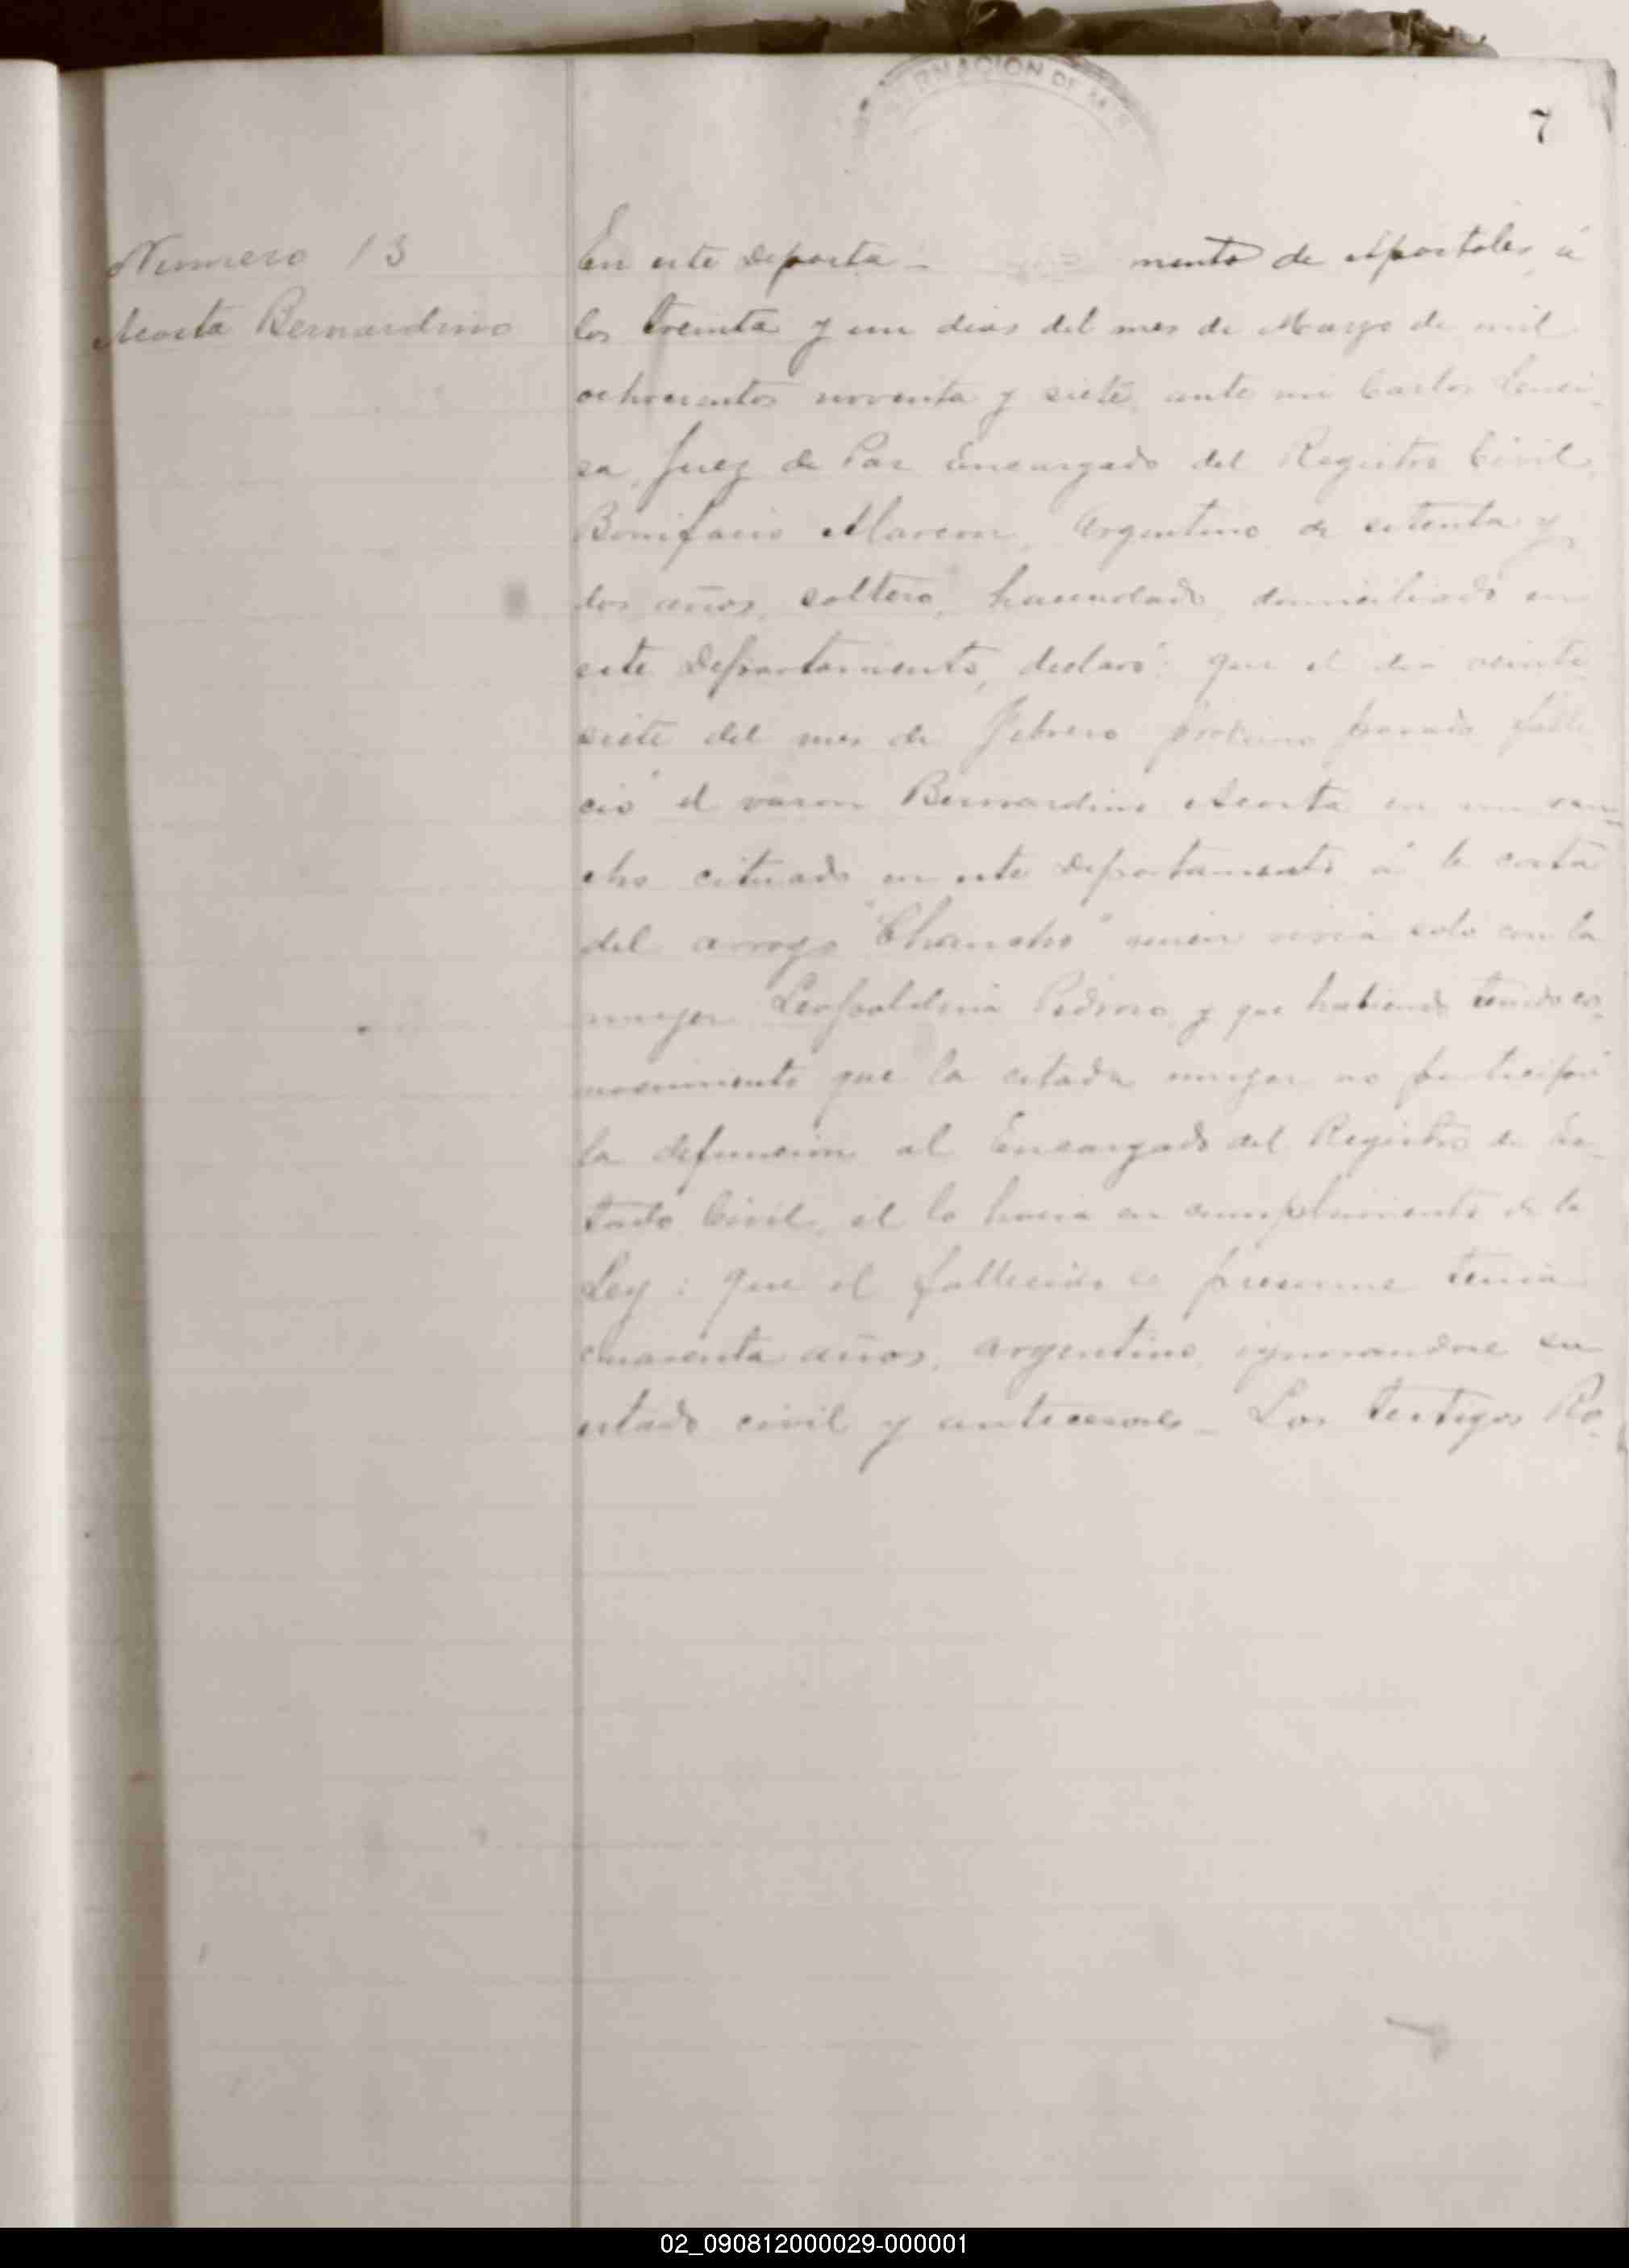 RNACION DE
7
Numero 13
Acosta Bernardino
En este Departa- mento de Apostoles, á
los treinta y un dias del mes de Mayo de mil
ochocientos noventa y siete, ante mi Carlos
sa, Juez de Paz Encargado del Registro Civil,
Bonifacio Argentino de setenta y
dos años, soltero, hacendado, domiciliado en
este Departamento, declaró: que el dia veinte
siete del mes de Febrero proximo pasado falle
ció el varon Bernardino Acosta en un ran-
cho cituado en este Departamento á la costa
del arroyo "Chancho" quien vivia solo con la
muger Leopoldina Pedroso y que habiendo tenido co-
nocimiento que la citada muger no participó
la defuncion al Encargado del Registro de Es-
tado Civil, el lo hacia en cumplimiento de la
Ley: que el fallecido se presume tenia
cuarenta años, argentino, ignorandose su
estado civil y antecesores - Los testigos Ro-
02_090812000029-000001